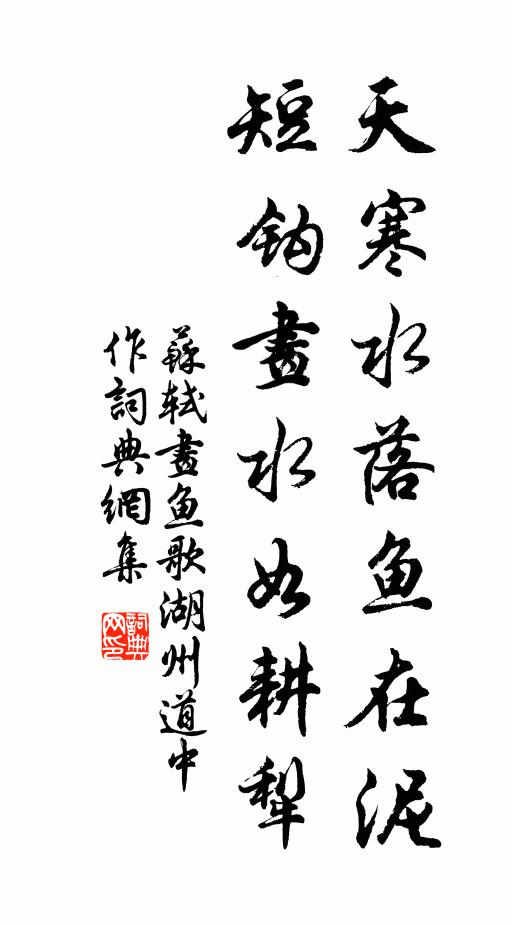 天寒水落鱼在泥
短钩畫水如耕犁
蘇軾畫鱼歌湖州道中
作詞典網集
詞典网印